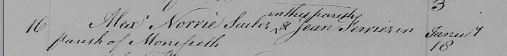 3
16 Alexr Norrie Sailor in this parish & Jean Ferrier in Janury
parish of Monifieth 18